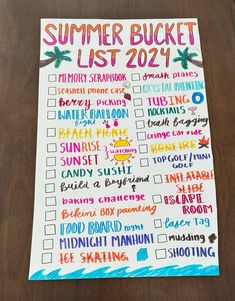 SUMMER BUCKET
LIST 2024
MEMORY SCRAPBOOK
seashell phone case
Berry PICKING
WATER BALLOON
fight
BEACH PICNIC
SUNRISE
SUNSET
watching
CANDY SUSHI
Build a Boyfriend
baking challenge
Bikini BOX painting
FOOD BOARD night
MIDNIGHT MANHUNT
ICE SKATING
smash plates
CRYSTAL PAINTING
TUBING
MOCKTAILS
trash Bagging
cringe car ride
BONFIRE
TOPGOLF/MINI
GOLF
INFLATABLE
SLIDE
ESCAPE
ROOM
laser Tag
mudding
SHOOTING